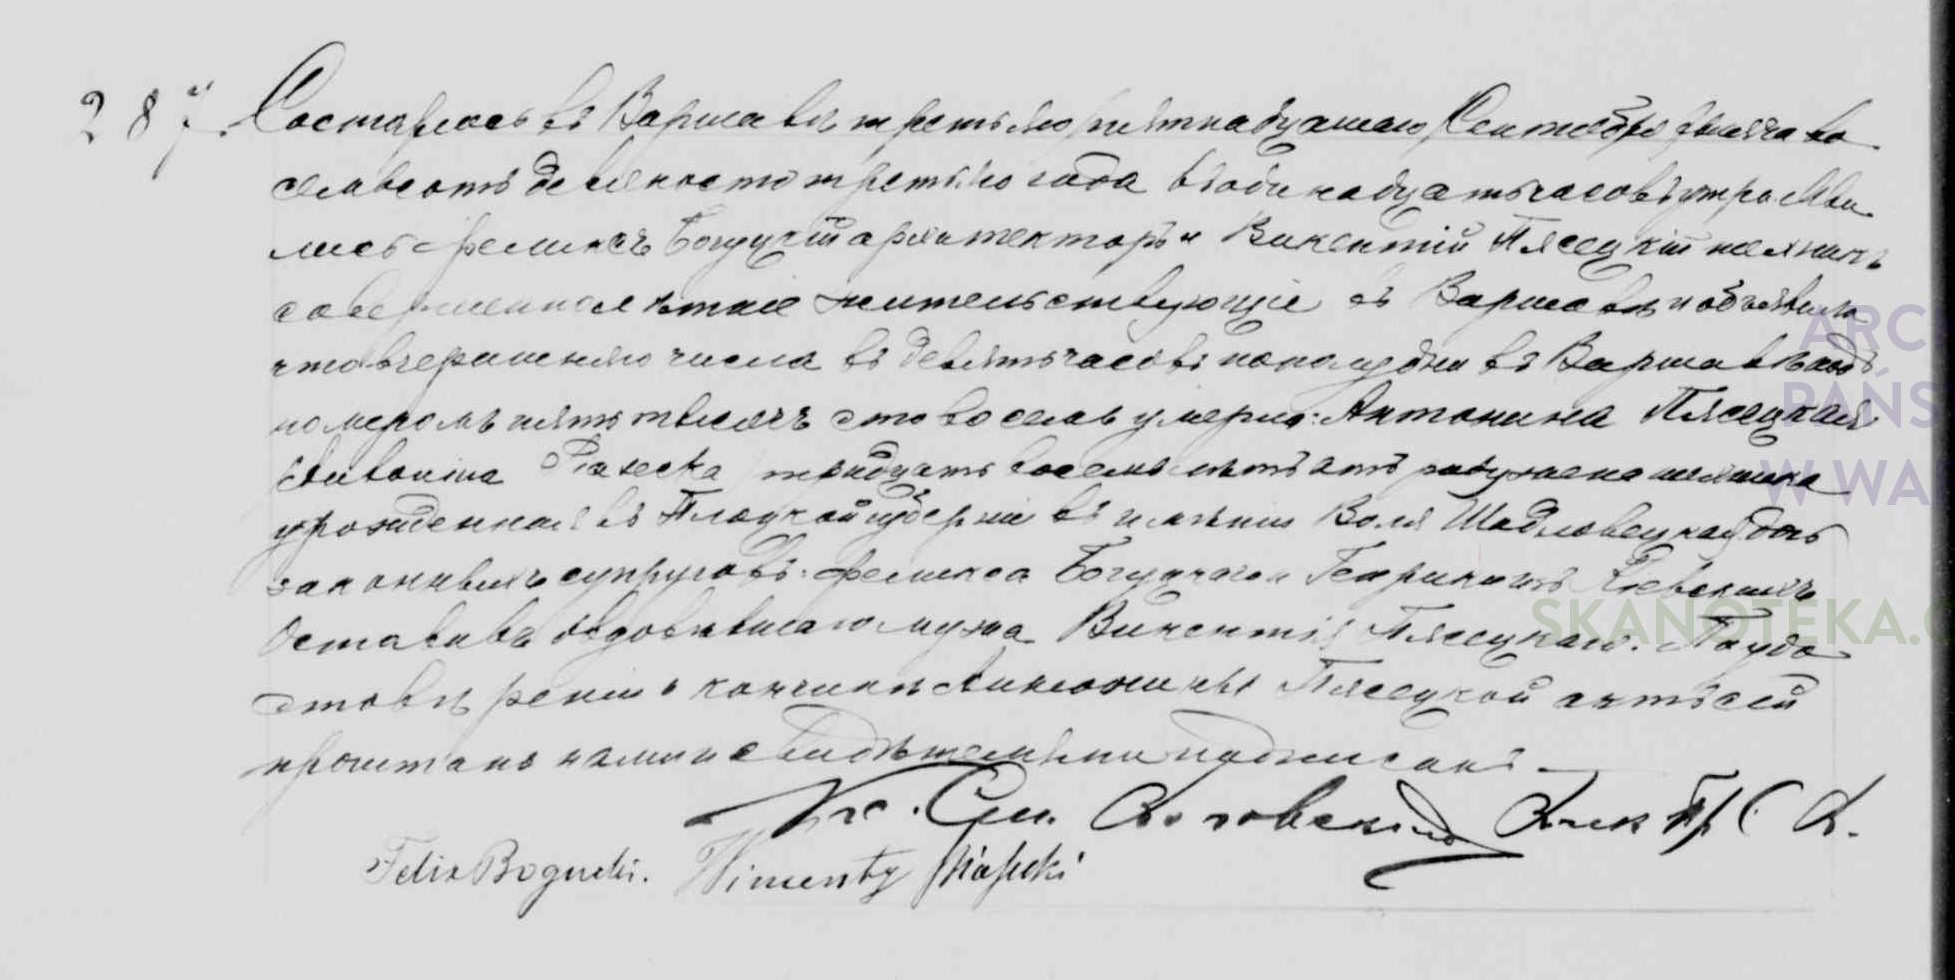 287.
Состоялось въ Варшавѣ третьяго /пятнадцатаго/ Сентября тысяча во
семьсотъ девяносто третьяго года въ одинадцать часовъ утра. Яви
лись Феликсъ Богуцкій архитекторъ и Викентій Пясецкій
совершеннолѣтніе жительствующіе въ Варшавѣ и объявили
что вчерашняго числа въ девять часовъ пополудни въ Варшавѣ подъ
номеромъ пять тысячъ сто восемь умерла: Антонина Пясецкая
/Antonina Piasecka/ тридцать восемь лѣтъ отъ роду жена
урожденная въ Плоцкой губерніи въ имѣніи Воля Шадловецкая дочь
законныхъ супруговъ: Феликса Богуцкаго и Генрики изъ
Оставивъ овдовѣвшаго мужа Викентія Пясецкаго. По удо
стовѣреніи о кончинѣ Антонины Пясецкой актъ сей
прочитанъ нами и свидѣтелями подписанъ.
Кс. Сим.
Felix Bogucki. Wincenty Piasecki
ARC
PAŃS
W WA
SKANOTEKA.C